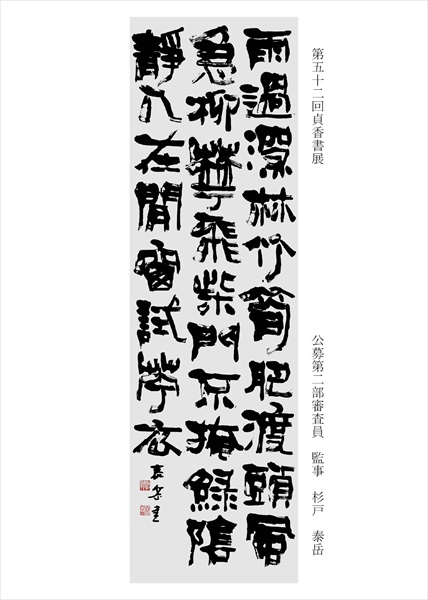 第五十二回貞香書展
公募第二部審査員　監事　杉戸　泰岳
雨過深林竹筍肥渡頭風
急柳華飛柴門不掩綠陰
靜人在閒窗試苧衣
泰岳書